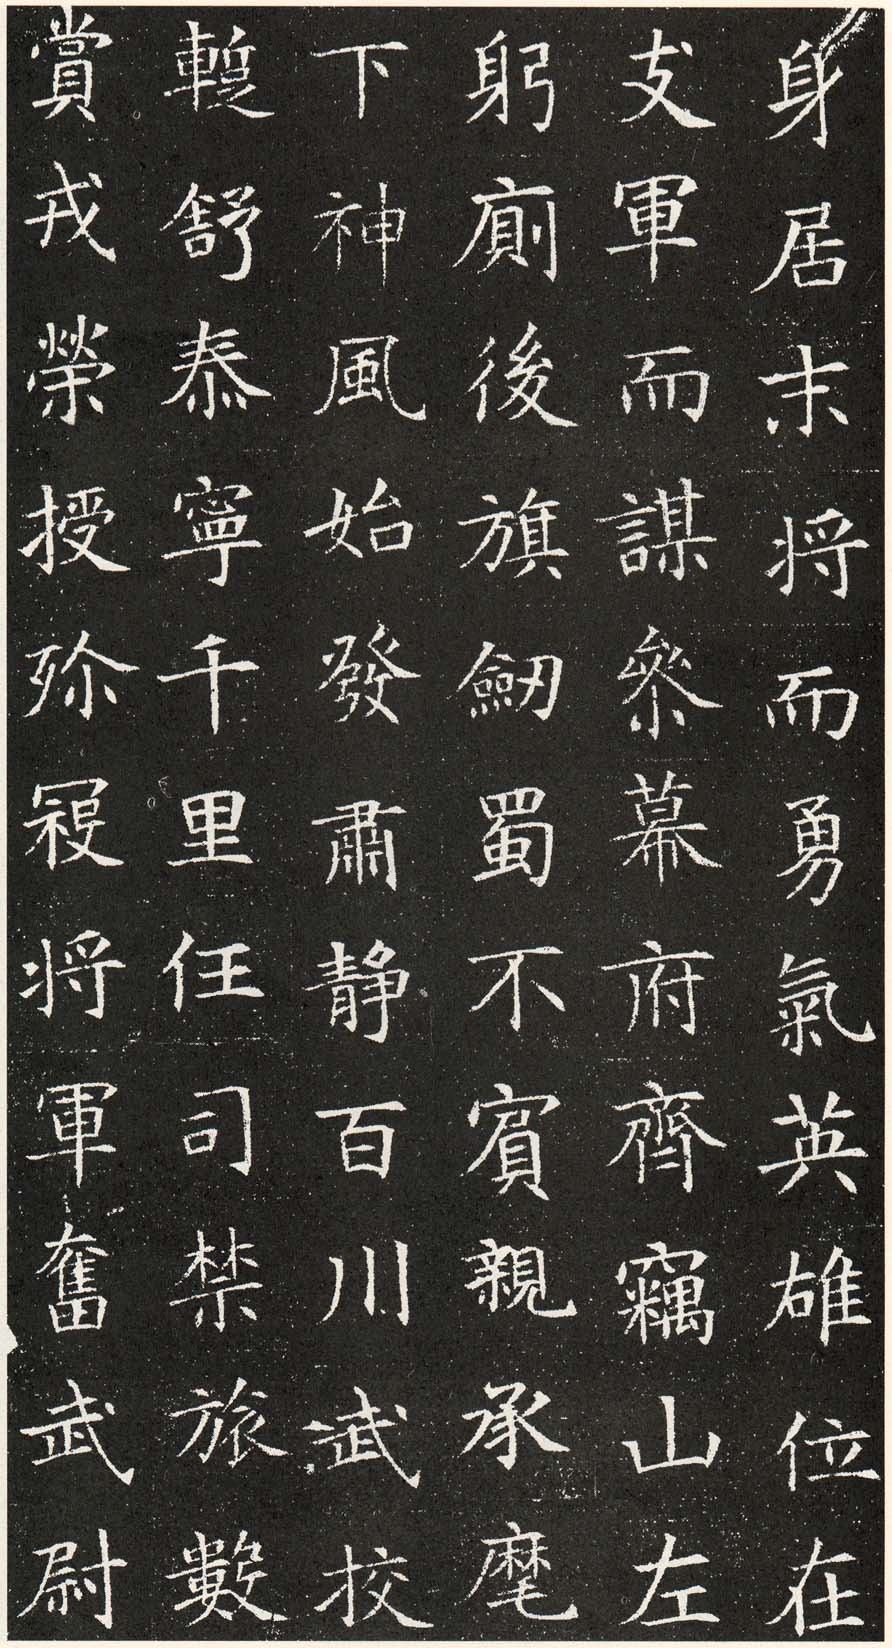 身居末将而勇氣英雄位在
支軍而謀叅幕府齊竊山左
躬廁後旗劒蜀不賓親承麾
下神風始發肅静百川武校
蹔舒泰寧千里任司禁旅數
賞戎榮授殄寇将軍奮武尉